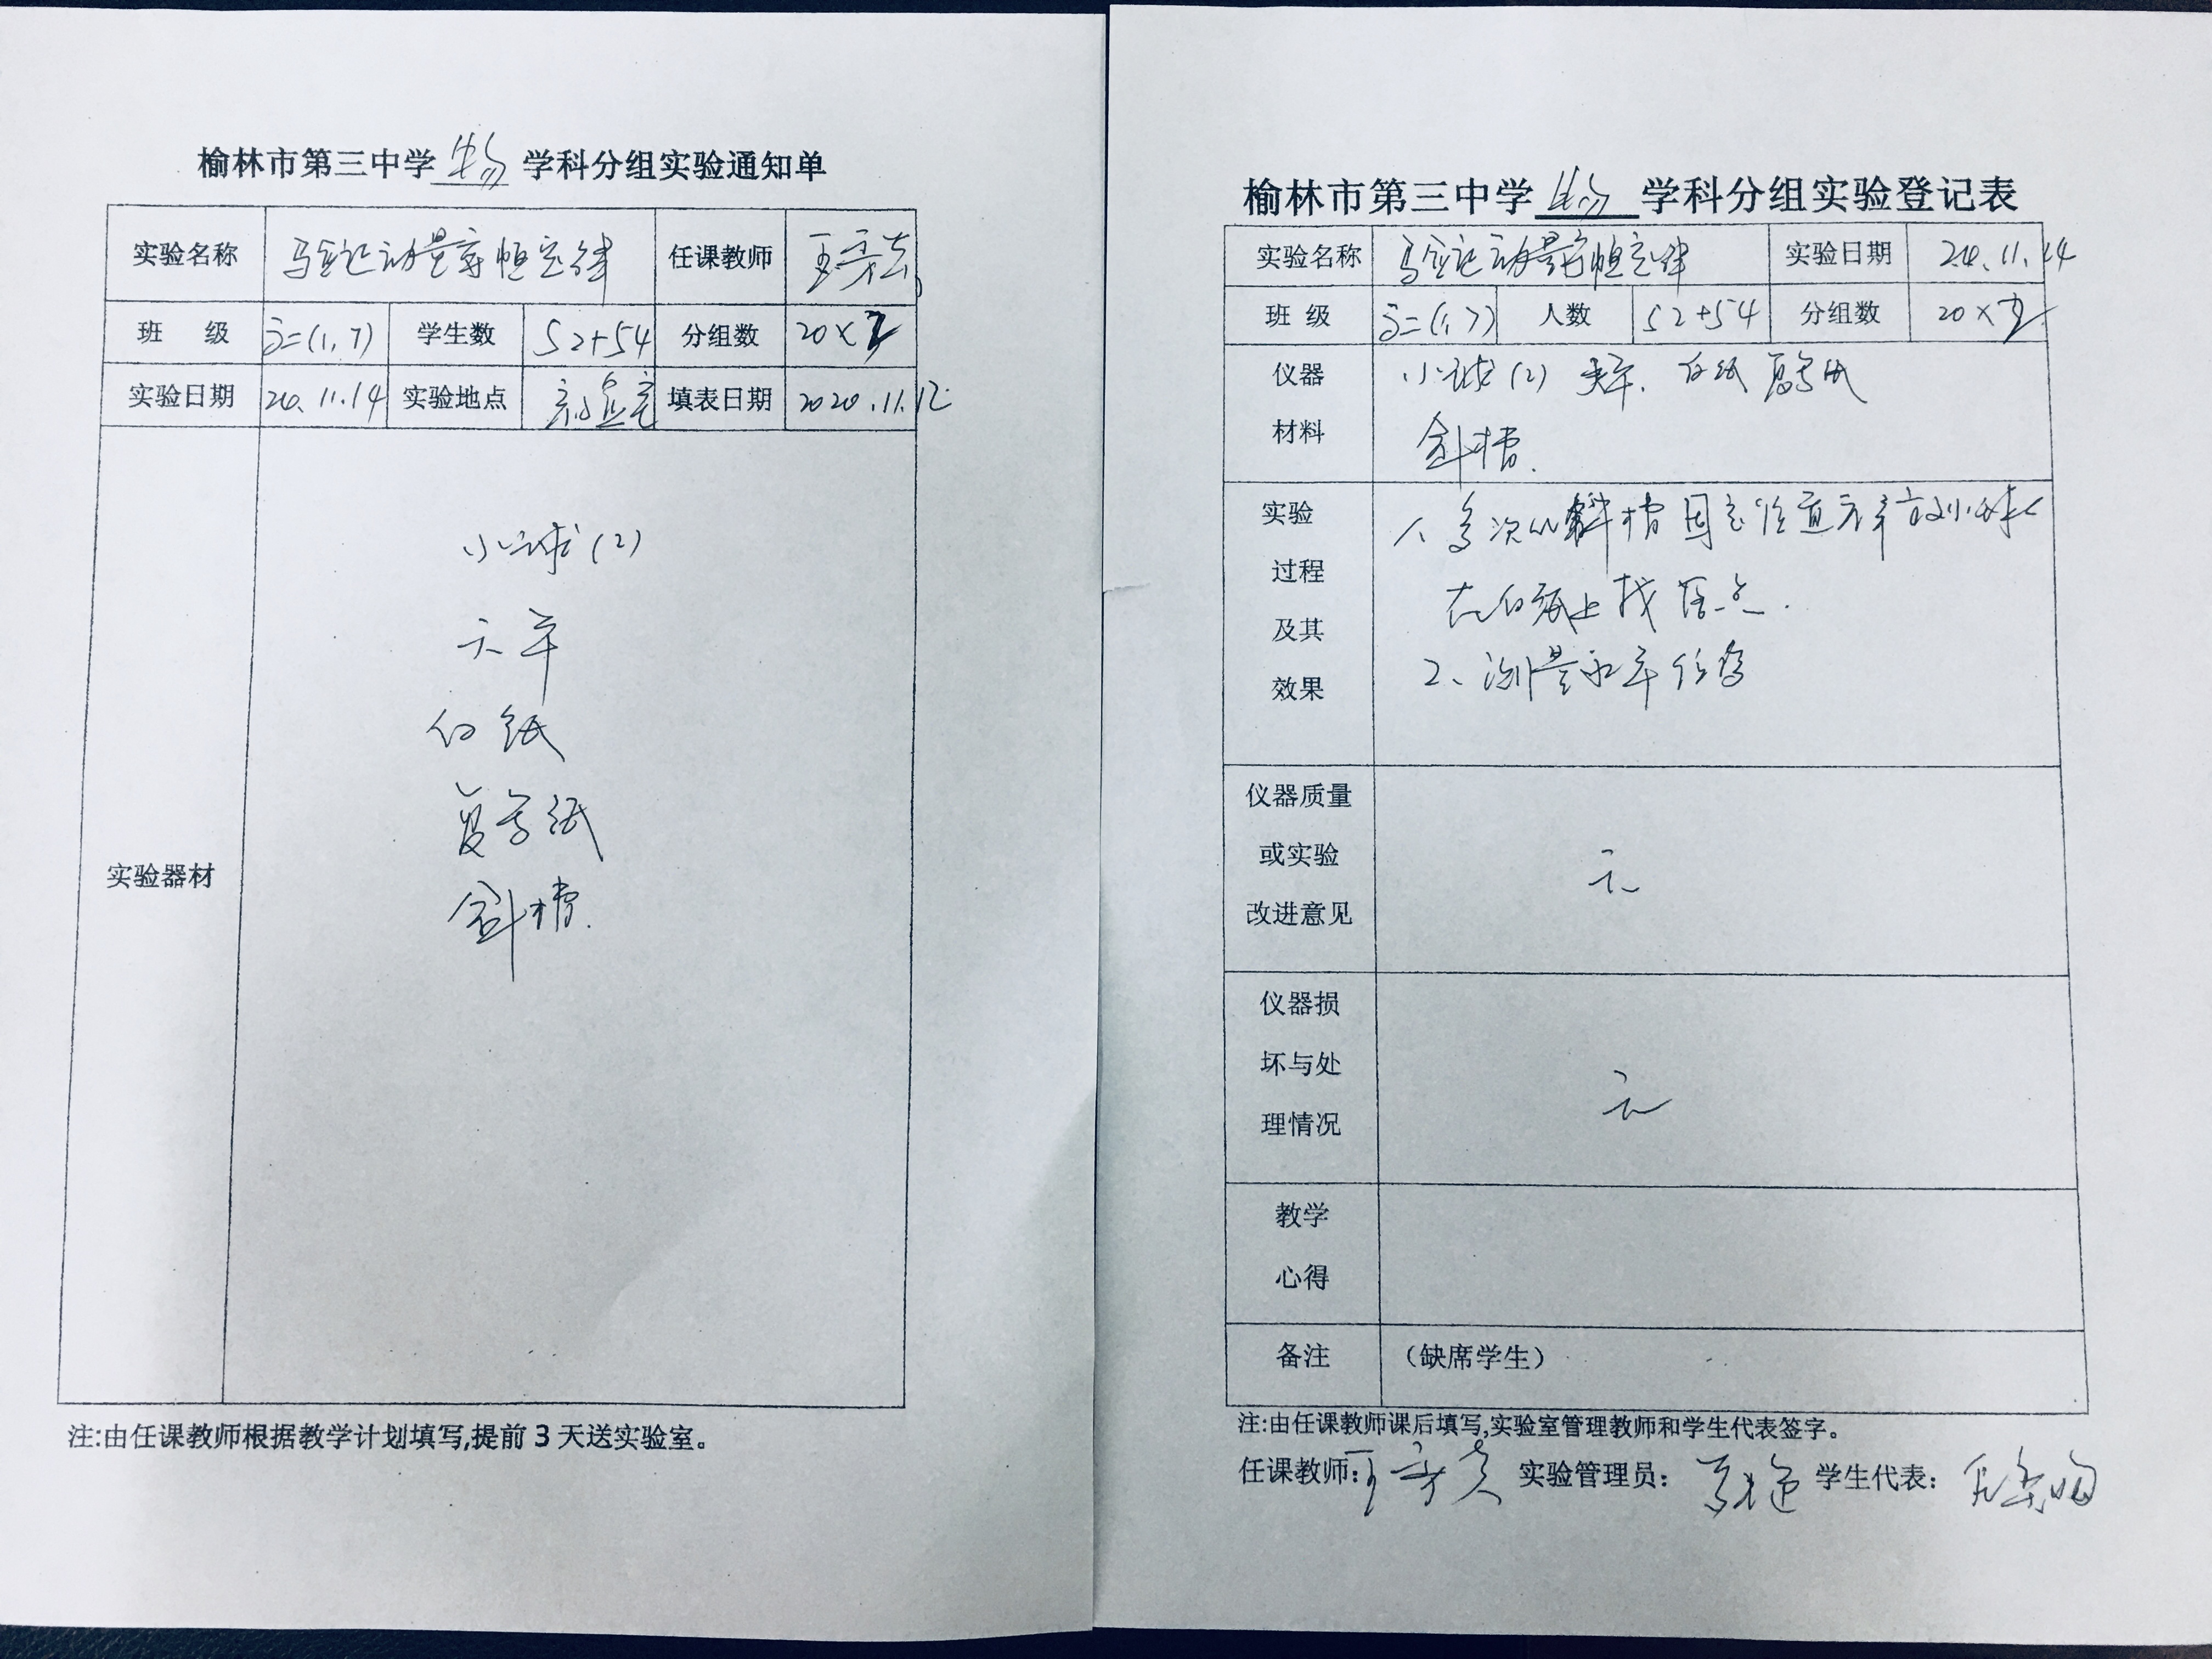 榆林市第三中学 物 学科分组实验通知单
实验名称 验证动量守恒定律 任课教师
班 级 高二(1,7) 学生数 52+54 分组数 20×2
实验日期 20.11.14 实验地点 实验室 填表日期 2020.11.12
实验器材
小球(2)
天平
白纸
复写纸
斜槽.
注:由任课教师根据教学计划填写,提前3天送实验室。
榆林市第三中学 物 学科分组实验登记表
实验名称 验证动量守恒定律 实验日期 20.11.14
班 级 高二(1,7) 人数 52+54 分组数 20×2
仪器 小球(2) 天平. 白纸 复写纸
材料 斜槽.
实验 1、多次从斜槽固定位置释放小球
过程 在白纸上找落点.
及其
效果 2、测量水平位移
仪器质量
或实验 无
改进意见
仪器损
坏与处 无
理情况
教学
心得
备注 (缺席学生)
注:由任课教师课后填写,实验室管理教师和学生代表签字。
任课教师: 实验管理员: 学生代表: